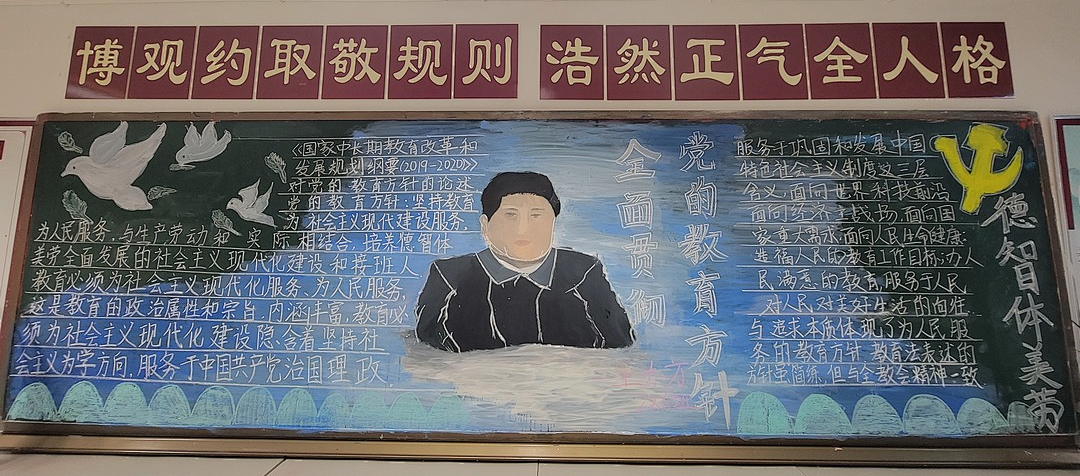 博观约取敬规则 浩然正气全人格
《国家中长期教育改革和
发展规划纲要(2019-2020)》
对党的教育方针的论述
党的教育方针：坚持教育
为社会主义现代建设服务，
为人民服务，与生产劳动和实际相结合，培养德智体
美劳全面发展的社会主义现代化建设和接班人
教育必须为社会主义现代化服务、为人民服务，
这是教育的政治属性和宗旨，内涵丰富，教育必
须为社会主义现代化建设隐含着坚持社
会主义为学方向，服务于中国共产党治国理政，
全面贯彻
党的教育方针
服务于巩固和发展中国
特色社会主义制度这三层
含义，面向世界科技前沿
面向经济主战场，面向国
家重大需求，面向人民生命健康
造福人民的教育工作目标：办人
民满意的教育，服务于人民
对人民对美好生活的向往
与追求本质体现了为人民服
务的教育方针，教育法表述的
方针虽简练，但与全教会精神一致
德智体美劳